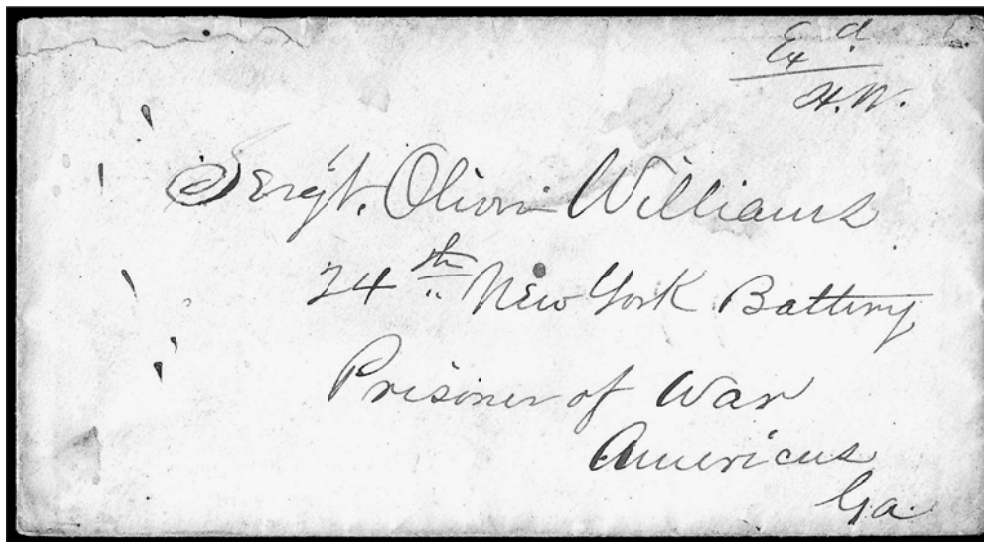 Exd
H.W.
Sergt. Oliver Williams
24th New York Battery
Prisoner of War
Americus
Ga.